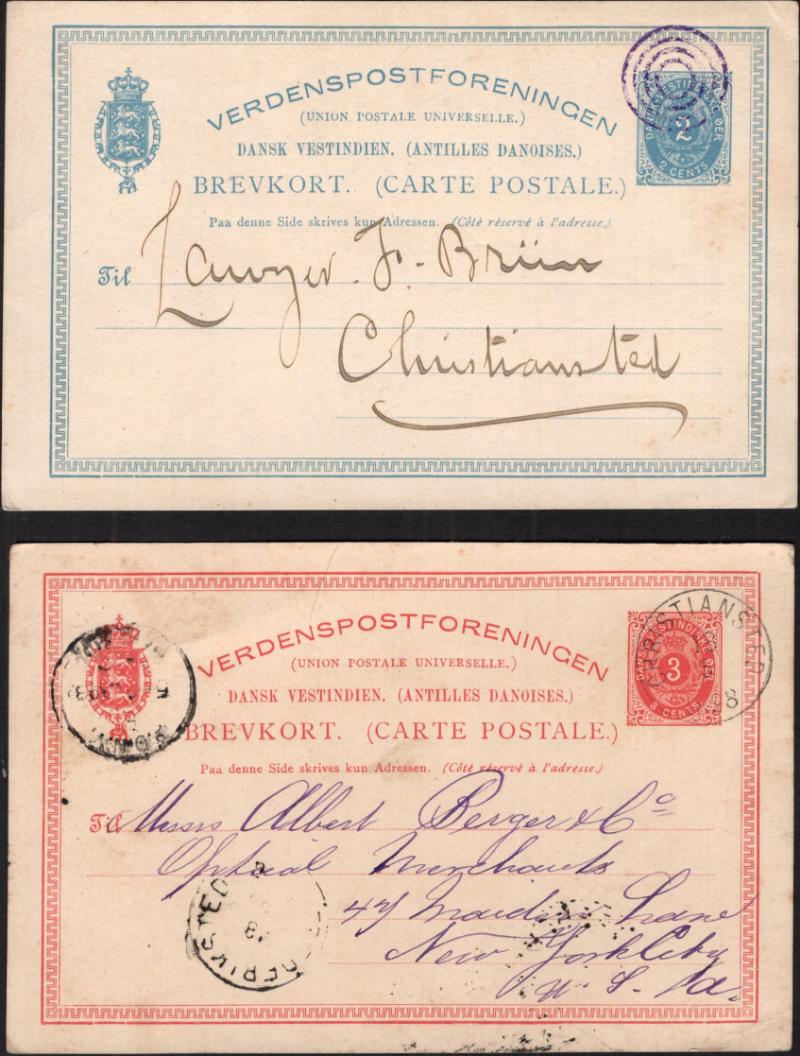 VERDENSPOSTFORENINGEN
(UNION POSTALE UNIVERSELLE.)
DANSK VESTINDIEN. (ANTILLES DANOISES.)
BREVKORT. (CARTE POSTALE.)
2
2 CENTS
Paa denne Side skrives kun Adressen. (Côté réservé à l'adresse.)
Til Lawyer F. Brüun
Christiansted
VERDENSPOSTFORENINGEN
(UNION POSTALE UNIVERSELLE.)
DANSK VESTINDIEN. (ANTILLES DANOISES.)
BREVKORT. (CARTE POSTALE.)
3
3 CENTS
CHRISTIANSTED
98
Paa denne Side skrives kun Adressen. (Côté réservé à l'adresse.)
Til Messrs Albert Berger & Co
Optical Merchants
47 Maiden Lane
New York City
U. S. A.